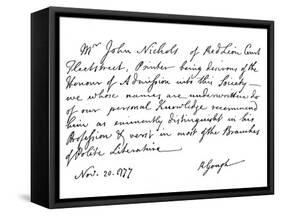 Mr John Nichols of Red Lion Court
Fleetstreet, Printer being desirous of the
Honour of Admission into this Society
we whose names are underwritten do
of our personal Knowledge recommend
him as eminently distinguisht in his
Profession & verst in most of the Branches
of Polite Literature
Nov. 20. 1777 R Gough